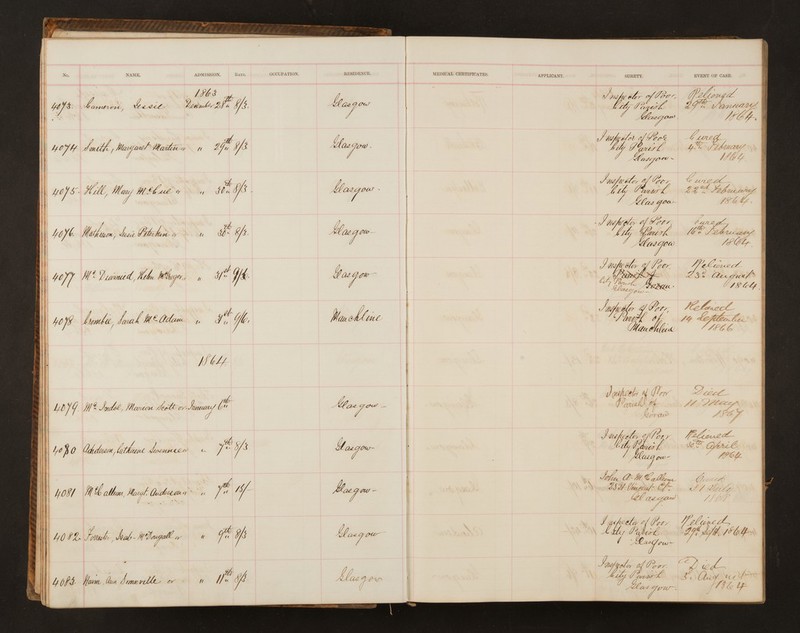 No. NAME. ADMISSION. RATE OCCUPATION. RESIDENCE. MEDICAL CERTIFICATES APPLICANT. SURETY. EVENT OF CASE.
1863
4073 Cameron, Jessie December 28th 8/3 Glasgow Inspector of Poor, City Parish Glasgow Relieved 29th January 1864.
4074 Smith, Margaret Martin or " 29th 8/3 Glasgow Inspector of Poor City Parish Glasgow Cured 4th February 1864
4075 Hill, Mary or " 30th 8/3 Glasgow Inspector of Poor, City Parish Glasgow Cured 22nd February 1864.
4076 Mathieson, or " 8/3 Glasgow Inspector of Poor City Parish Glasgow Cured 16th February 1864
4077 Helen McGregor or " 31st 9/6 Glasgow Inspector of Poor City Parish Glasgow Govan Relieved 23rd August 1864
4078 Crombie, Sarah McAdam " 31st 9/6. Mauchline Inspector of Poor, Parish of Mauchline Relieved 14 September 1866
1864
4079 or January 6th Glasgow Inspector of Poor Parish of Govan Died 11 May 1867
4080 Catherine or " 7th 8/3 Glasgow Inspector of Poor City Parish Glasgow Relieved April 1864
4081 McCallum, Margt. Anderson " 7th 15/- Glasgow John A. McCallum Glasgow Cured
4082 Forrester, McDougall or " 9th 8/3 Glasgow Inspector of Poor City Parish Glasgow Relieved 29th Septr. 1864
4083 Ann or " 11th 8/3 Glasgow Inspector of Poor City Parish Glasgow Died August 1864